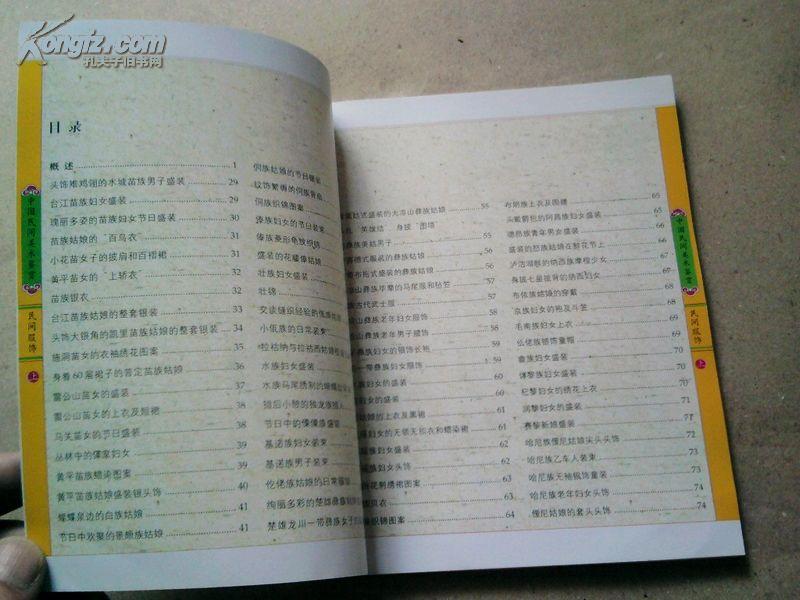 Kongfz.com
孔夫子旧书网
目录
概述 1
头饰雉鸡翎的水城苗族男子盛装 29
台江苗族妇女盛装 29
瑰丽多姿的苗族妇女节日盛装 30
苗族姑娘的“百鸟衣” 31
小花苗女子的披肩和百褶裙 32
黄平苗女的“上轿衣” 32
苗族银衣 32
台江苗族姑娘的整套银装 33
头饰大银角的凯里苗族姑娘的整套银装 34
施洞苗女的衣袖绣花图案 35
身着60层裙子的苦定苗族姑娘 36
雷公山苗女的盛装 37
雷公山苗女的上衣及短裙 38
乌关苗女的节日盛装 38
丛林中的僅家妇女 39
黄平苗族蜡染图案 39
黄平苗族姑娘盛装银头饰 40
蝴蝶泉边的白族姑娘 40
节日中欢聚的景颇族姑娘 41
侗族姑娘的节日银装
纹饰繁缛的侗族背扇
侗族织锦图案
傣族妇女的节日装束
傣族菱形龟纹织锦
盛装的花瑶傣姑娘
壮族妇女盛装
壮锦
交谈缝织经验的
小佤族的日常装束
拉祜纳与拉祜西姑娘
水族妇女盛装
水族马尾绣制的蝴蝶
猎后小憩的独龙族猎人
节日中的傈僳族盛装
基诺族妇女装束
基诺族男子装束
仡佬族姑娘的日常服
绚丽多彩的楚雄彝族
楚雄龙川一带彝族女子
式盛装的大凉山彝族姑娘 55
英雄结 身披“图塔”
彝族英姑男子
德式服装的彝族姑娘
布拖式盛装的彝族姑娘
山彝族毕摩的马尾服和毡笠
族古代武士服
山彝族老年妇女服饰
山彝族老年男子服饰
彝族妇女的银饰长袍 59
一带彝族妇女服饰 59
妇女的盛装 60
姑娘的盛装 60
姑娘的上衣及黑裙 61
妇女的无领无扣衣和蜡染裙 62
族姑娘头饰 62
挑花刺绣裙图案 63
贝衣 63
族织锦图案 64
布朗族上衣及围腰 65
头戴箭包的阿昌族妇女盛装 65
德昂族青年男女盛装 66
盛装的怒族姑娘在鲜花节上 66
泸沽湖畔的纳西族摩梭少女 66
身披七星披背的纳西妇女 67
布依族姑娘的穿戴 67
京族妇女的袍及斗笠 68
毛南族妇女上衣 68
仫佬族银饰童帽 69
畲族妇女盛装 69
侾黎族妇女盛装 70
杞黎妇女的绣花上衣 70
润黎妇女的盛装 71
赛黎新娘盛装 71
哈尼族僾尼姑娘尖头头饰 72
哈尼族乙车人装束 73
哈尼族无袖银饰童装 73
哈尼族老年妇女头饰 74
僾尼姑娘的套头头饰 74
中国民间美术鉴赏
民间服饰
上
中国民间美术鉴赏
民间服饰
上